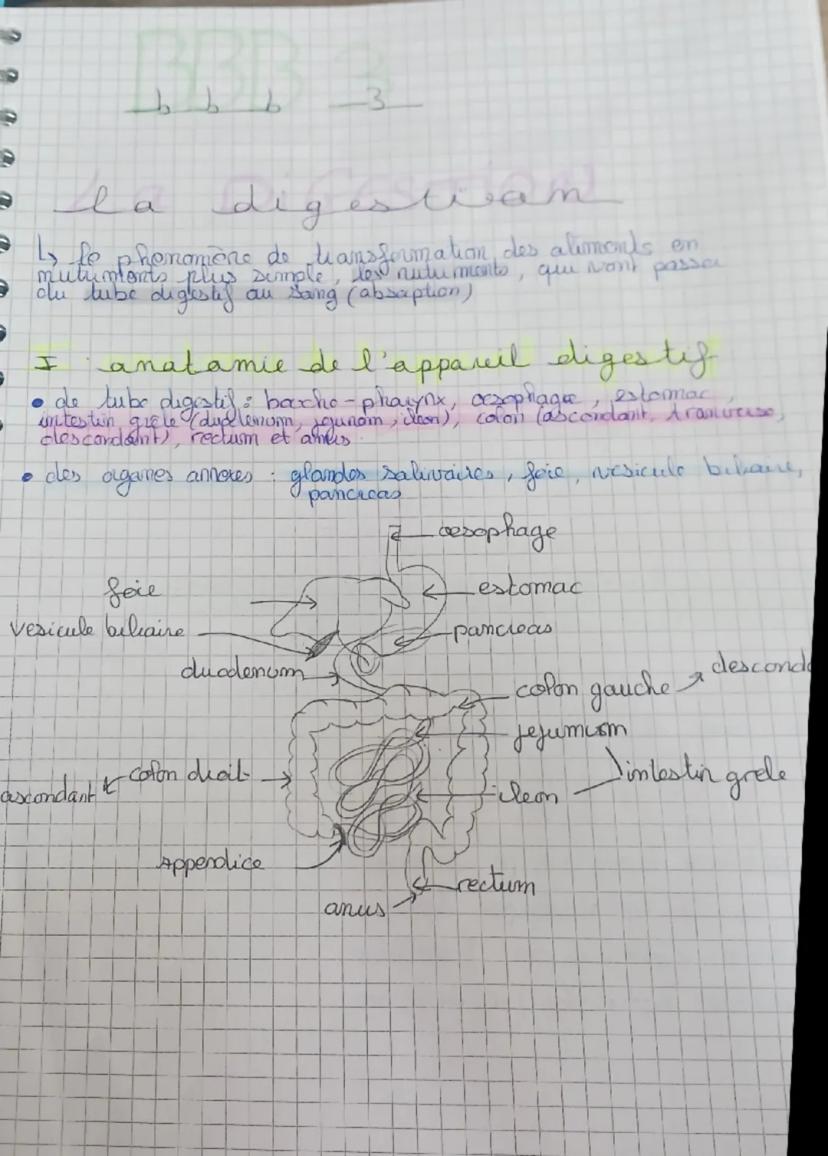 b b b 3
La digestion
↳ le phénomène de transformation des aliments en
nutriments plus simple, les nutriments, qui vont passer
du tube digestif au sang (absorption)
I. anatomie de l'appareil digestif
• de tube digestif : bucho-pharynx, œsophage, estomac,
intestin grêle (duodenum, jejunom, ileon), colon (ascendant, transverse,
descendant), rectum et anus
• des organes annexes : glandes salivaires, foie, vesicule biliaire,
pancreas
œsophage
foie
estomac
vesicule biliaire
pancreas
duodenum
colon gauche ↗ descend
jejunum
ascendant ← colon droit
intestin grele
ileon
Appendice
rectum
anus